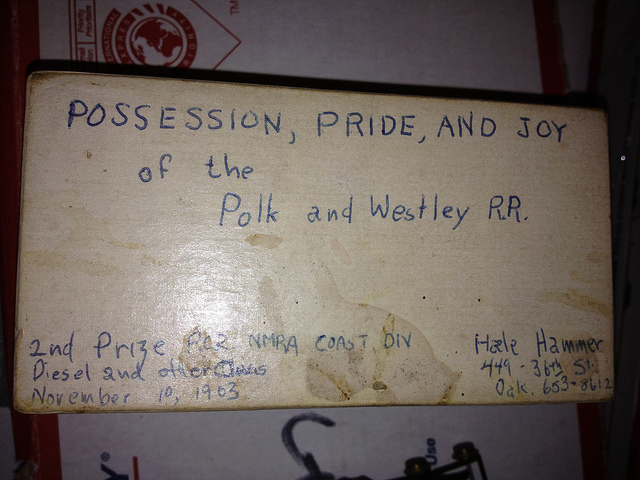 POSSESSION, PRIDE, AND JOY
of the
Polk and Westley R.R.
2nd Prize PCR NMRA COAST DIV
Diesel and other Class
November 10, 1963
Hale Hammer
449 - 36th St.
Oak. 653-8612
Use
TM